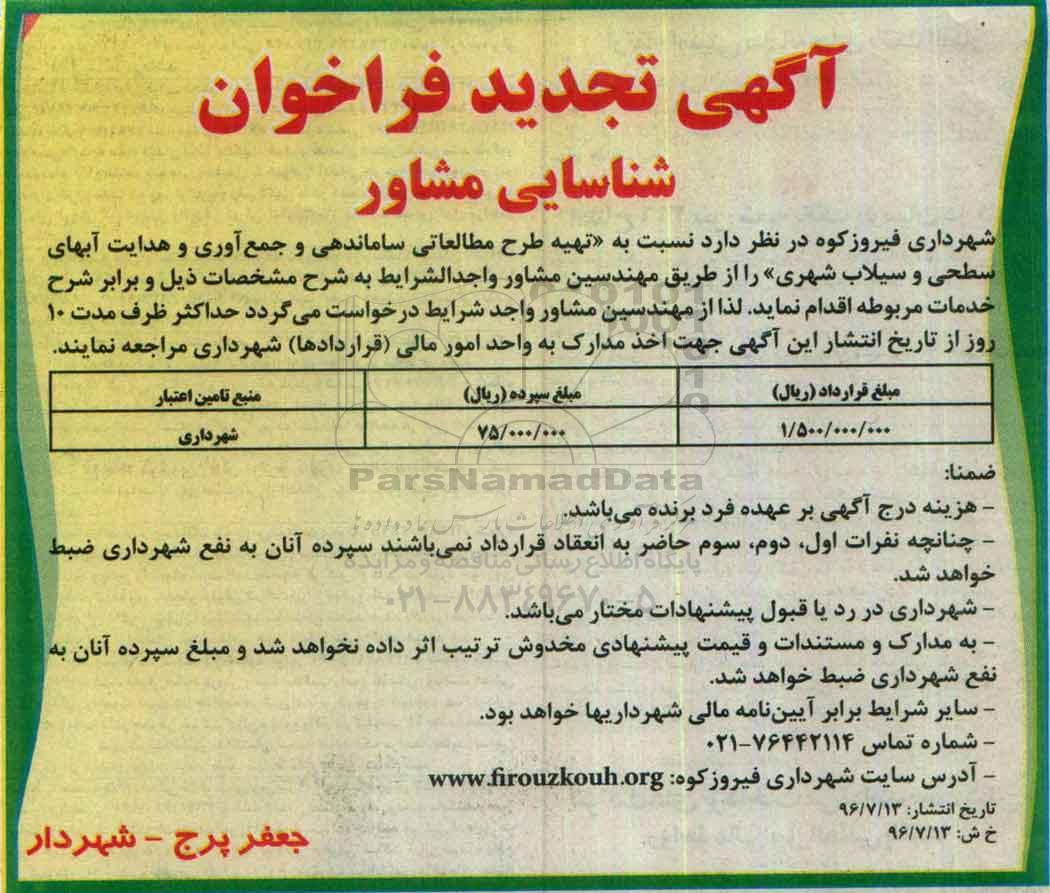 آگهی تجدید فراخوان
شناسایی مشاور
شهرداری فیروزکوه در نظر دارد نسبت به «تهیه طرح مطالعاتی ساماندهی و جمع‌آوری و هدایت آبهای
سطحی و سیلاب شهری» را از طریق مهندسین مشاور واجدالشرایط به شرح مشخصات ذیل و برابر شرح
خدمات مربوطه اقدام نماید. لذا از مهندسین مشاور واجد شرایط درخواست می‌گردد حداکثر ظرف مدت ۱۰
روز از تاریخ انتشار این آگهی جهت اخذ مدارک به واحد امور مالی (قراردادها) شهرداری مراجعه نمایند.
مبلغ قرارداد (ریال) مبلغ سپرده (ریال) منبع تامین اعتبار
۱/۵۰۰/۰۰۰/۰۰۰ ۷۵/۰۰۰/۰۰۰ شهرداری
ParsNamadData
ضمنا:
- هزینه درج آگهی بر عهده فرد برنده می‌باشد.
- چنانچه نفرات اول، دوم، سوم حاضر به انعقاد قرارداد نمی‌باشند سپرده آنان به نفع شهرداری ضبط
پایگاه اطلاع رسانی مناقصه و مزایده
خواهد شد.
۰۲۱-۸۸۳۴۹۶۷۰-۵
- شهرداری در رد یا قبول پیشنهادات مختار می‌باشد.
- به مدارک و مستندات و قیمت پیشنهادی مخدوش ترتیب اثر داده نخواهد شد و مبلغ سپرده آنان به
نفع شهرداری ضبط خواهد شد.
- سایر شرایط برابر آیین‌نامه مالی شهرداریها خواهد بود.
- شماره تماس ۷۶۴۴۲۱۱۴-۰۲۱
- آدرس سایت شهرداری فیروزکوه: www.firouzkouh.org
تاریخ انتشار: ۹۶/۷/۱۳
خ ش: ۹۶/۷/۱۳
جعفر پرچ - شهردار